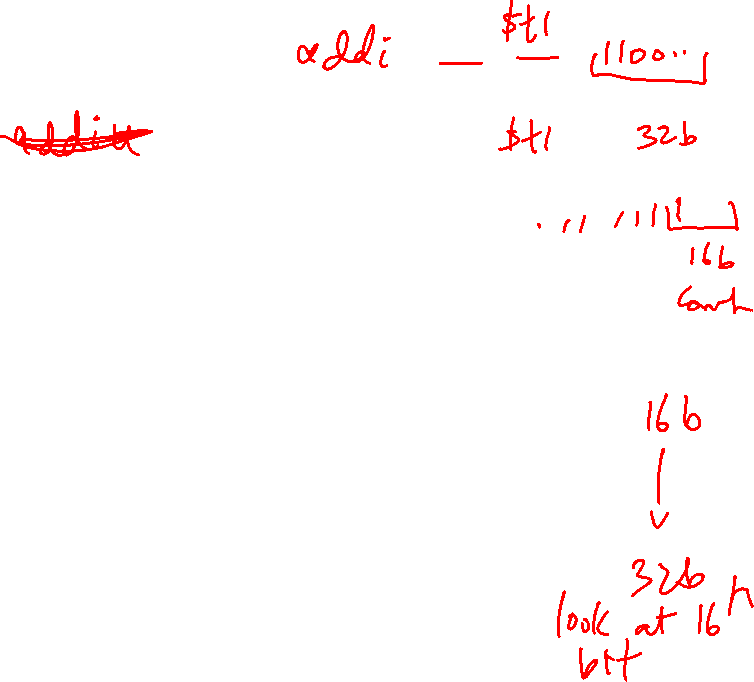 addi _ $t1 1100..
$t1 32b
. 11 1111 1
16b
16b
32b
look at 16
bit